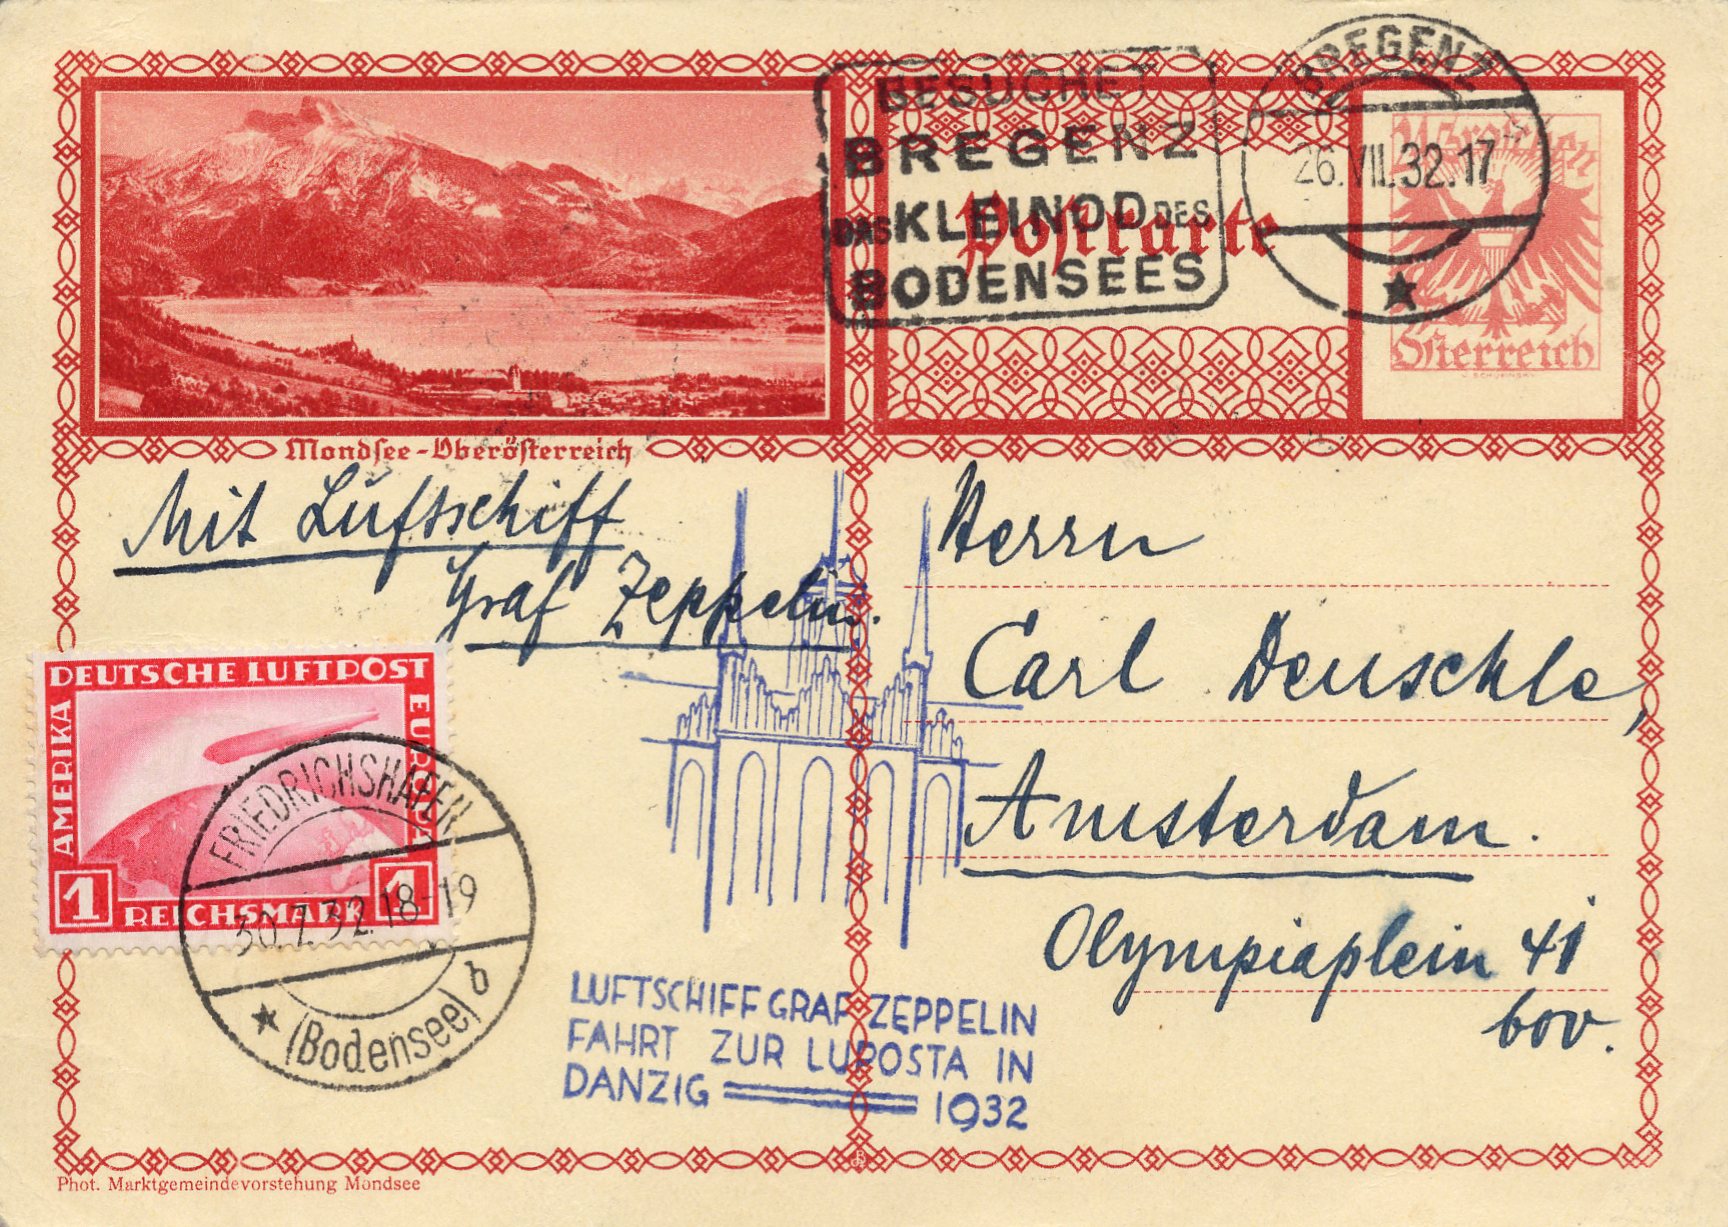 BESUCHET
BREGENZ
DAS KLEINOD DES
BODENSEES
BREGENZ
26.VII.32.17
Postkarte
Groschen
Österreich
J. SCHUFINSKY
Mondsee-Oberösterreich
Mit Luftschiff
Graf Zeppelin.
Herrn
Carl Deuschle,
Amsterdam.
Olympiaplein 41
bov.
DEUTSCHE LUFTPOST
AMERIKA
EUROPA
1 REICHSMARK 1
FRIEDRICHSHAFEN
30.7.32.18-19
(Bodensee) b
LUFTSCHIFF GRAF ZEPPELIN
FAHRT ZUR LUPOSTA IN
DANZIG 1932
Phot. Marktgemeindevorstehung Mondsee